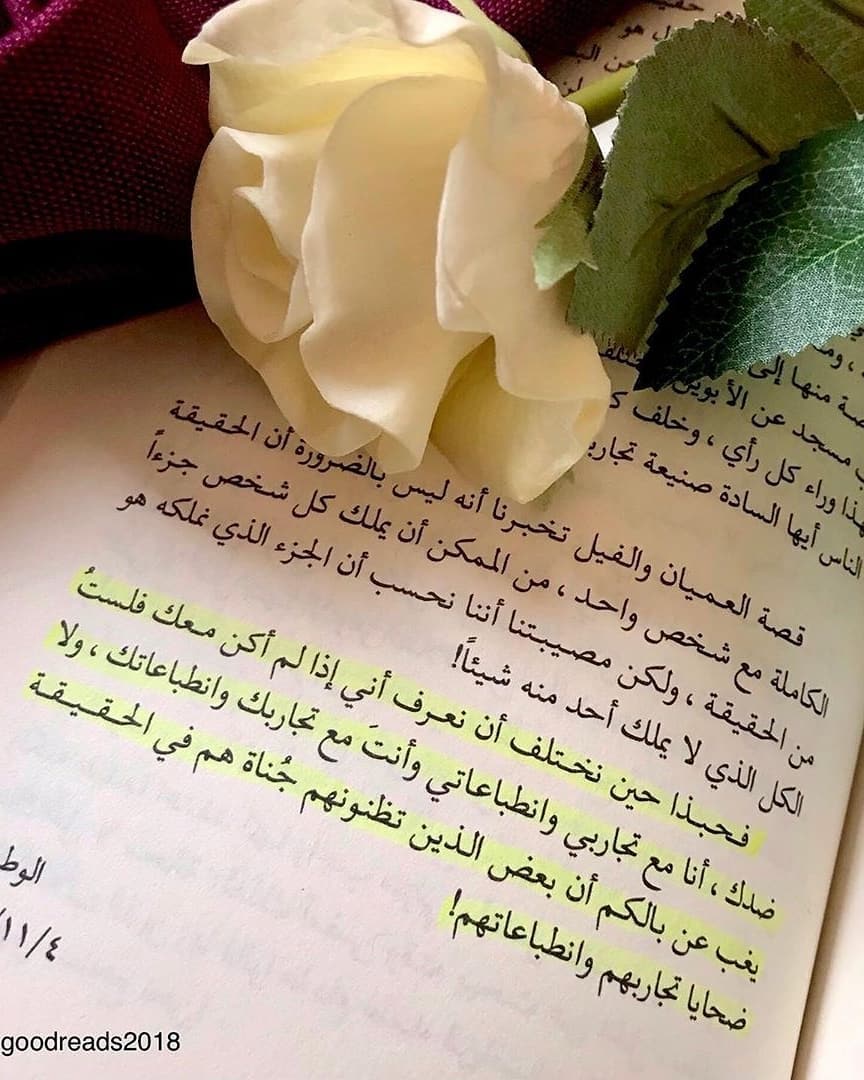 حقيقة
ل هو
حن
، ومـ
صة منها إلى
مسجد عن الأبوين
هذا وراء كل رأي ، وخلف كـ
الناس أيها السادة صنيعة تجاربـ
قصة العميان والفيل تخبرنا أنه ليس بالضرورة أن الحقيقة
الكاملة مع شخص واحد ، من الممكن أن يملك كل شخص جزءاً
من الحقيقة ، ولكن مصيبتنا أننا نحسب أن الجزء الذي نملكه هو
الكل الذي لا يملك أحد منه شيئاً!
فحبذا حين نختلف أن نعرف أني إذا لم أكن معك فلستُ
ضدك ، أنا مع تجاربي وانطباعاتي وأنتَ مع تجاربك وانطباعاتك ، ولا
يغب عن بالكم أن بعض الذين تظنونهم جُناة هم في الحقيقة
ضحايا تجاربهم وانطباعاتهم!
الوط
/١١/٤
goodreads2018